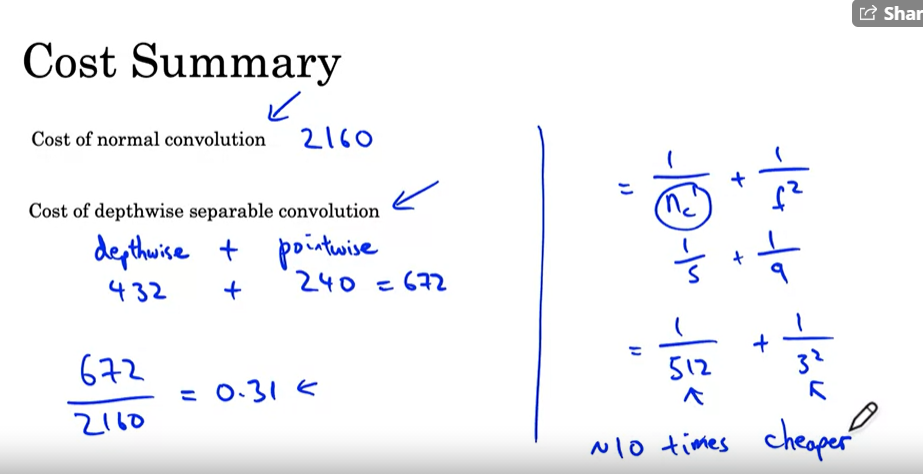 Shar
Cost Summary
Cost of normal convolution 2160
Cost of depthwise separable convolution
depthwise + pointwise
432 + 240 = 672
672/2160 = 0.31 ←
= 1/n_c' + 1/f²
1/5 + 1/9
= 1/512 + 1/3²
~10 times cheaper